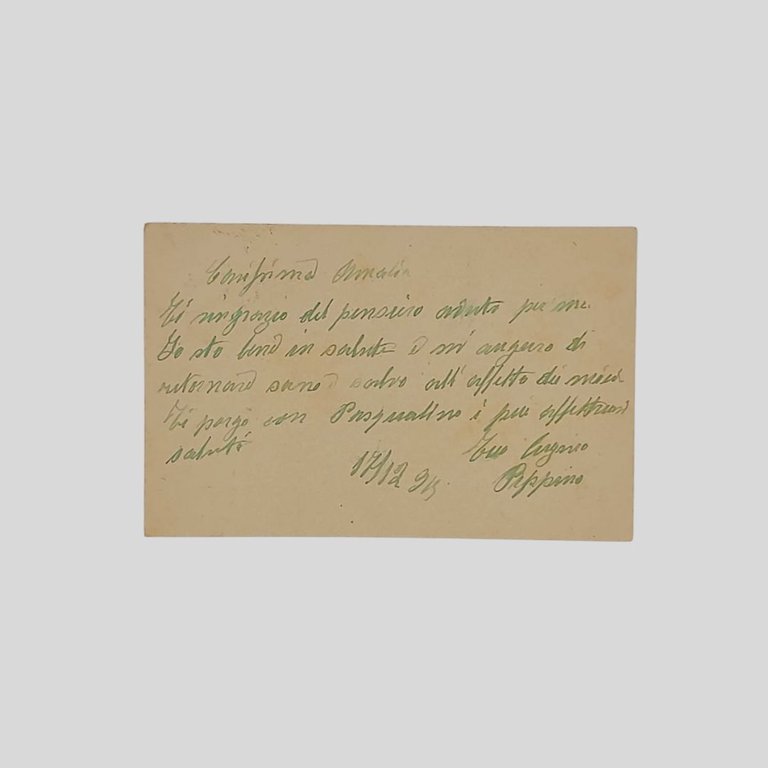 Carissima Amalia
Ti ringrazio del pensiero aduto per me.
Io sto bene in salute e m'auguro di
ritornare sano e salvo all'affetto dei miei
Ti porgo con Pasqualino i più affettuosi
saluti
Tuo Cugino
17/12 95. Peppino